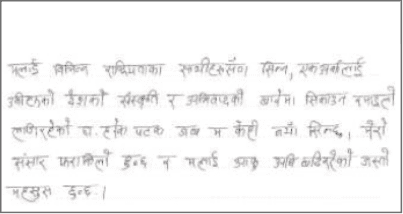 मलाई विभिन्न राष्ट्रियताका साथीहरुसँग मिल्न, एक अर्कालाई
उनीहरुको देशको संस्कृति र अभिवादनको बारेमा सिकाउन रमाइलो
लागिरहेको छ. हरेक पटक जब म केही नयाँ सिक्छु, मेरो
संसार फराकिलो हुन्छ र मलाई आफू अघि बढिरहेको जस्तो
महसुस हुन्छ ।